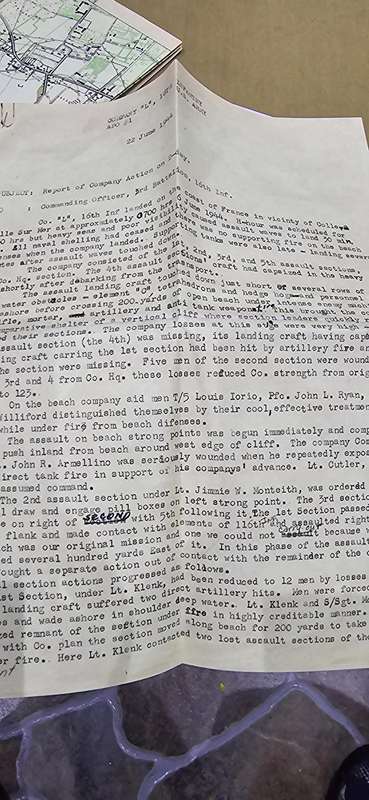 COMPANY "L", 16th INFANTRY
APO #1 U.S. ARMY
22 June 1944
SUBJECT: Report of Company Action on
Commanding Officer, 3rd Battalion, 16th Inf.
Co. "L", 16th Inf landed on the coast of France in vicinty of Colle
lls Sur Mer at approximately 0700 hrs 6 June 1944. H-hour was scheduled for
hrs but heavy seas and poor
All naval shelling had ceased
when the company landed.
after assault waves touched down
tanks were also late - landing several
The company consisted of the 1st, 2nd, 3rd, and 5th assault sections
Co. Hq. section. The 4th assault sections craft had capsized in the heavy
shortly after debarking from the
The assault landing craft touched down just short of several rows of
water obstacles
ashore before crossing 200 yards of open beach under intense enemy
rifle, mortar, artillery and anti tank weapons
shelter of a vertical cliff where section leaders quickly
their sections. The company losses at this stage were very high
assault section (the 4th) was missing, its landing craft having cap
ing craft carrying the 1st section had been hit by artillery fire an
the section were missing. Five men of the second section were woun
3rd and 4 from Co. Hq. these losses reduced Co. strength from orig
to 125.
On the beach company aid men T/5 Louis Iorio, Pfc. John L. Ryan,
Williford distinguished themselves by their cool, effective treatmen
while under fire from beach difenses.
The assault on beach strong points was begun immediately and comp
push inland from beach around west edge of cliff. The company Com
John R. Armellino was seriously wounded when he repeatedly expo
direct tank fire in support of his companys' advance. Lt. Cutler,
assumed command.
The 2nd assault section under Lt. Jimmie W. Monteith, was ordered
draw and engage pill boxes on left strong point. The 3rd secti
on right of second with 5th following it. The 1st Section passed
flank and made contact with elements of 116th and assaulted right
was our original mission and one we could not because w
ed several hundred yards East of it. In this phase of the assault
ought a separate action out of contact with the remainder of the c
section actions progressed as follows.
1st Section, under Lt. Klenk, had been reduced to 12 men by losses
landing craft suffered two direct artillery hits. Men were forced
and wade ashore in shoulder deep water. Lt. Klenk and S/Sgt.
ized remnant of the section under fire in highly creditable manner.
with Co. plan the section moved along beach for 200 yards to take
fire. Here Lt. Klenk contacted two lost assault sections of the